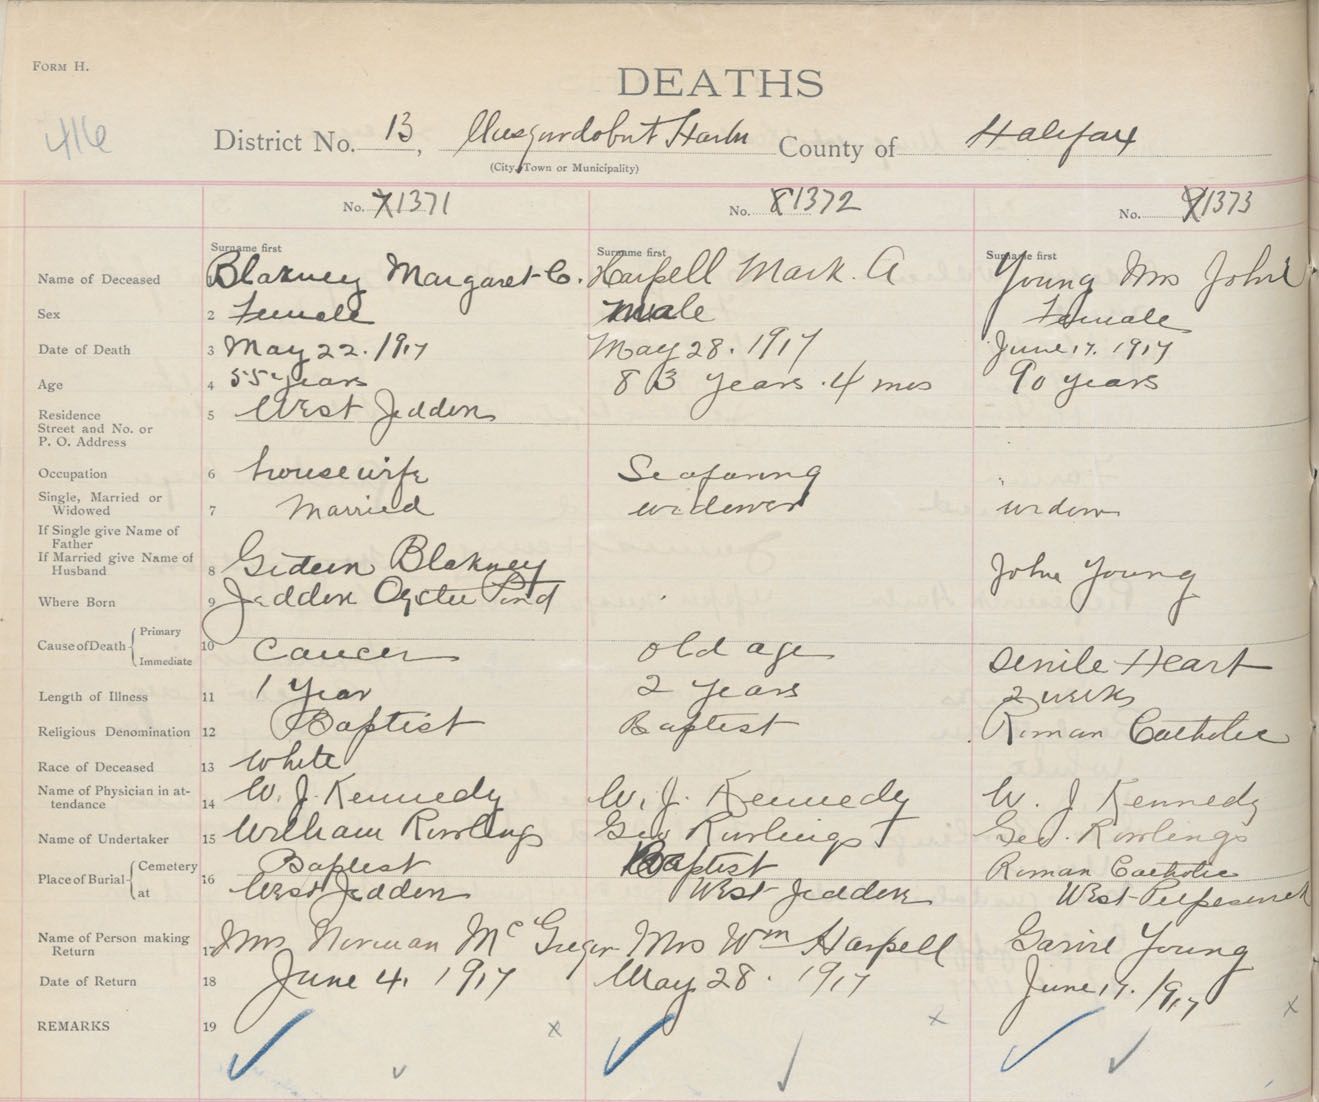 FORM H.
DEATHS
416
District No. 13, Musquodoboit Harbr County of Halifax
(City, Town or Municipality)
No. 7 1371 No. 8 1372 No. 9 1373
Surname first Surname first Surname first
Name of Deceased Blakney Margaret C. Harpell Mark. A Young Mrs John
Sex 2 Female male Female
Date of Death 3 May 22. 1917 May 28. 1917 June 17. 1917
Age 4 55 years 83 years. 4 mos 90 years
Residence 5 West Jeddore
Street and No. or
P. O. Address
Occupation 6 housewife Seafaring
Single, Married or
Widowed 7 Married widower widow
If Single give Name of
Father
If Married give Name of
Husband 8 Gideon Blakney John Young
Where Born 9 Jeddore Oyster Pond
Cause of Death Primary
Immediate 10 Cancer old age Senile Heart
Length of Illness 11 1 Year 2 years 2 weeks
Religious Denomination 12 Baptist Baptist Roman Catholic
Race of Deceased 13 White
Name of Physician in at-
tendance 14 W. J. Kennedy W. J. Kennedy W. J Kennedy
Name of Undertaker 15 William Rowlings Geo Rowlings Geo. Rowlings
Place of Burial Cemetery 16 Baptist Baptist Roman Catholic
at West Jeddore West Jeddore West
Name of Person making
Return 17 Mrs Norman McGregor Mrs Wm Harpell Young
Date of Return 18 June 4, 1917 May 28. 1917 June 17. 1917
REMARKS 19 x x x